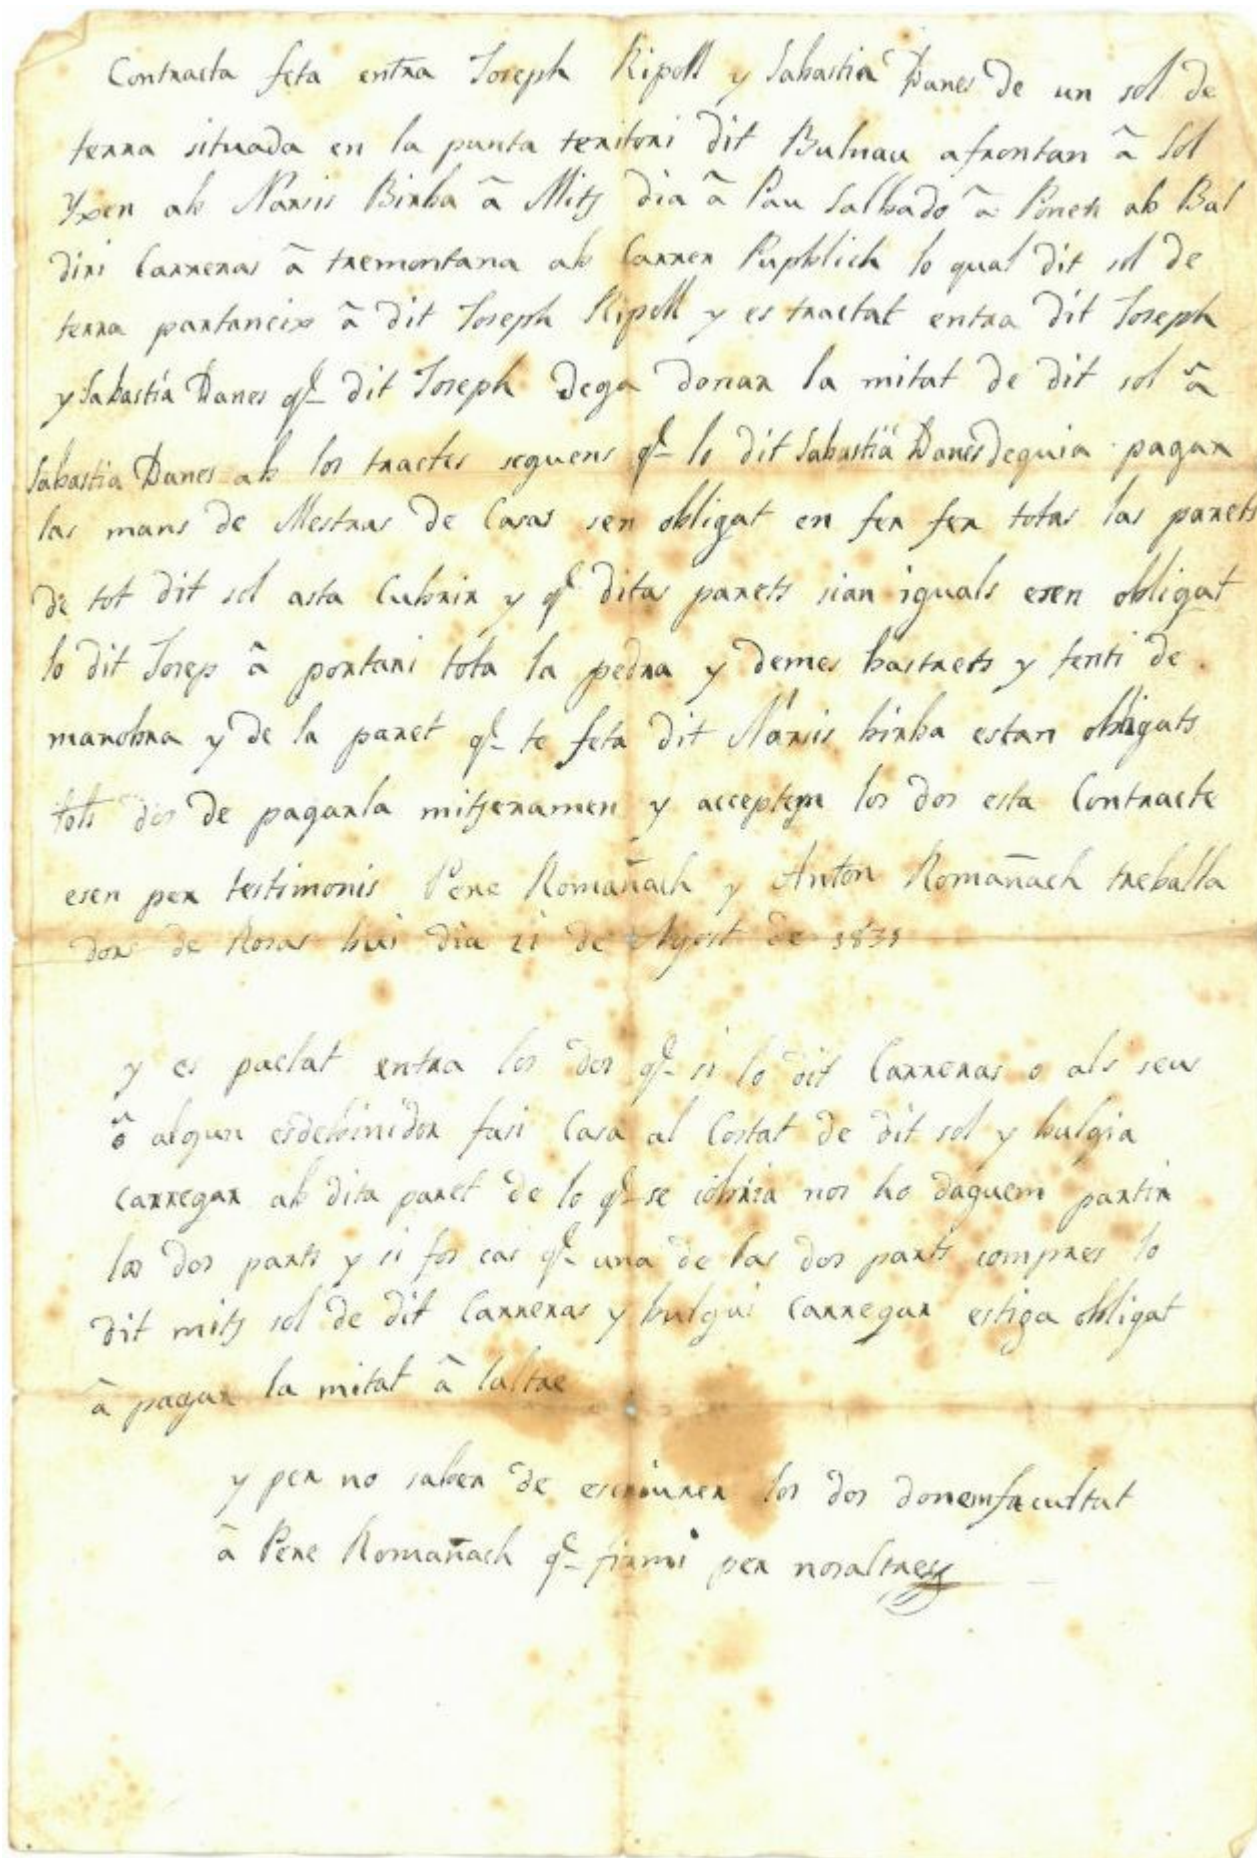 Contracta feta entra Joseph Ripoll y Sabastia Danes de un sol de
terra situada en la punta teritori dit Bulnau afrontan â Sol
Yxen ab Narsis Birba â Mitj dia â Pau Salbado â Ponen ab Bal
diri Carreras â tremontana ab Carrer Pupblich lo qual dit sol de
terra partaneix â dit Joseph Ripoll y es tractat entra dit Joseph
y Sabastia Danes q.e dit Joseph dega donar la mitat de dit sol â
Sabastia Danes ab los tractes seguens q.e lo dit Sabastia Danes deguia pagar
las mans de Mestras de Casas sen obligat en fer fer totas las parets
de tot dit sol asta Cubrir y q.e ditas parets sian iguals esen obligat
lo dit Josep â portari tota la pedra y demes bastrets y ferti de
manobra y de la paret q.e te feta dit Narsis birba estan obligats
tots dos de pagarla mitjeramen y acceptem los dos esta Contracte
esen per testimonis Pere Romañach y Anton Romañach treballa
dors de Rosas hui dia 21 de Agost de 1831
y es pactat entra los dos q.e si lo dit Carreras o als seus
ô algun esdebinidor fasi Casa al Costat de dit sol y bulgia
carregar ab dita paret de lo q.e se cobria nos ho daguem partir
las dos parts y si fos cas q.e una de las dos parts compres lo
dit mitj sol de dit Carreras y bulgui Carregar estiga obligat
â pagar la mitat â laltre
y per no saber de escriurer los dos donem facultat
â Pere Romañach q.e firmi per nosaltres